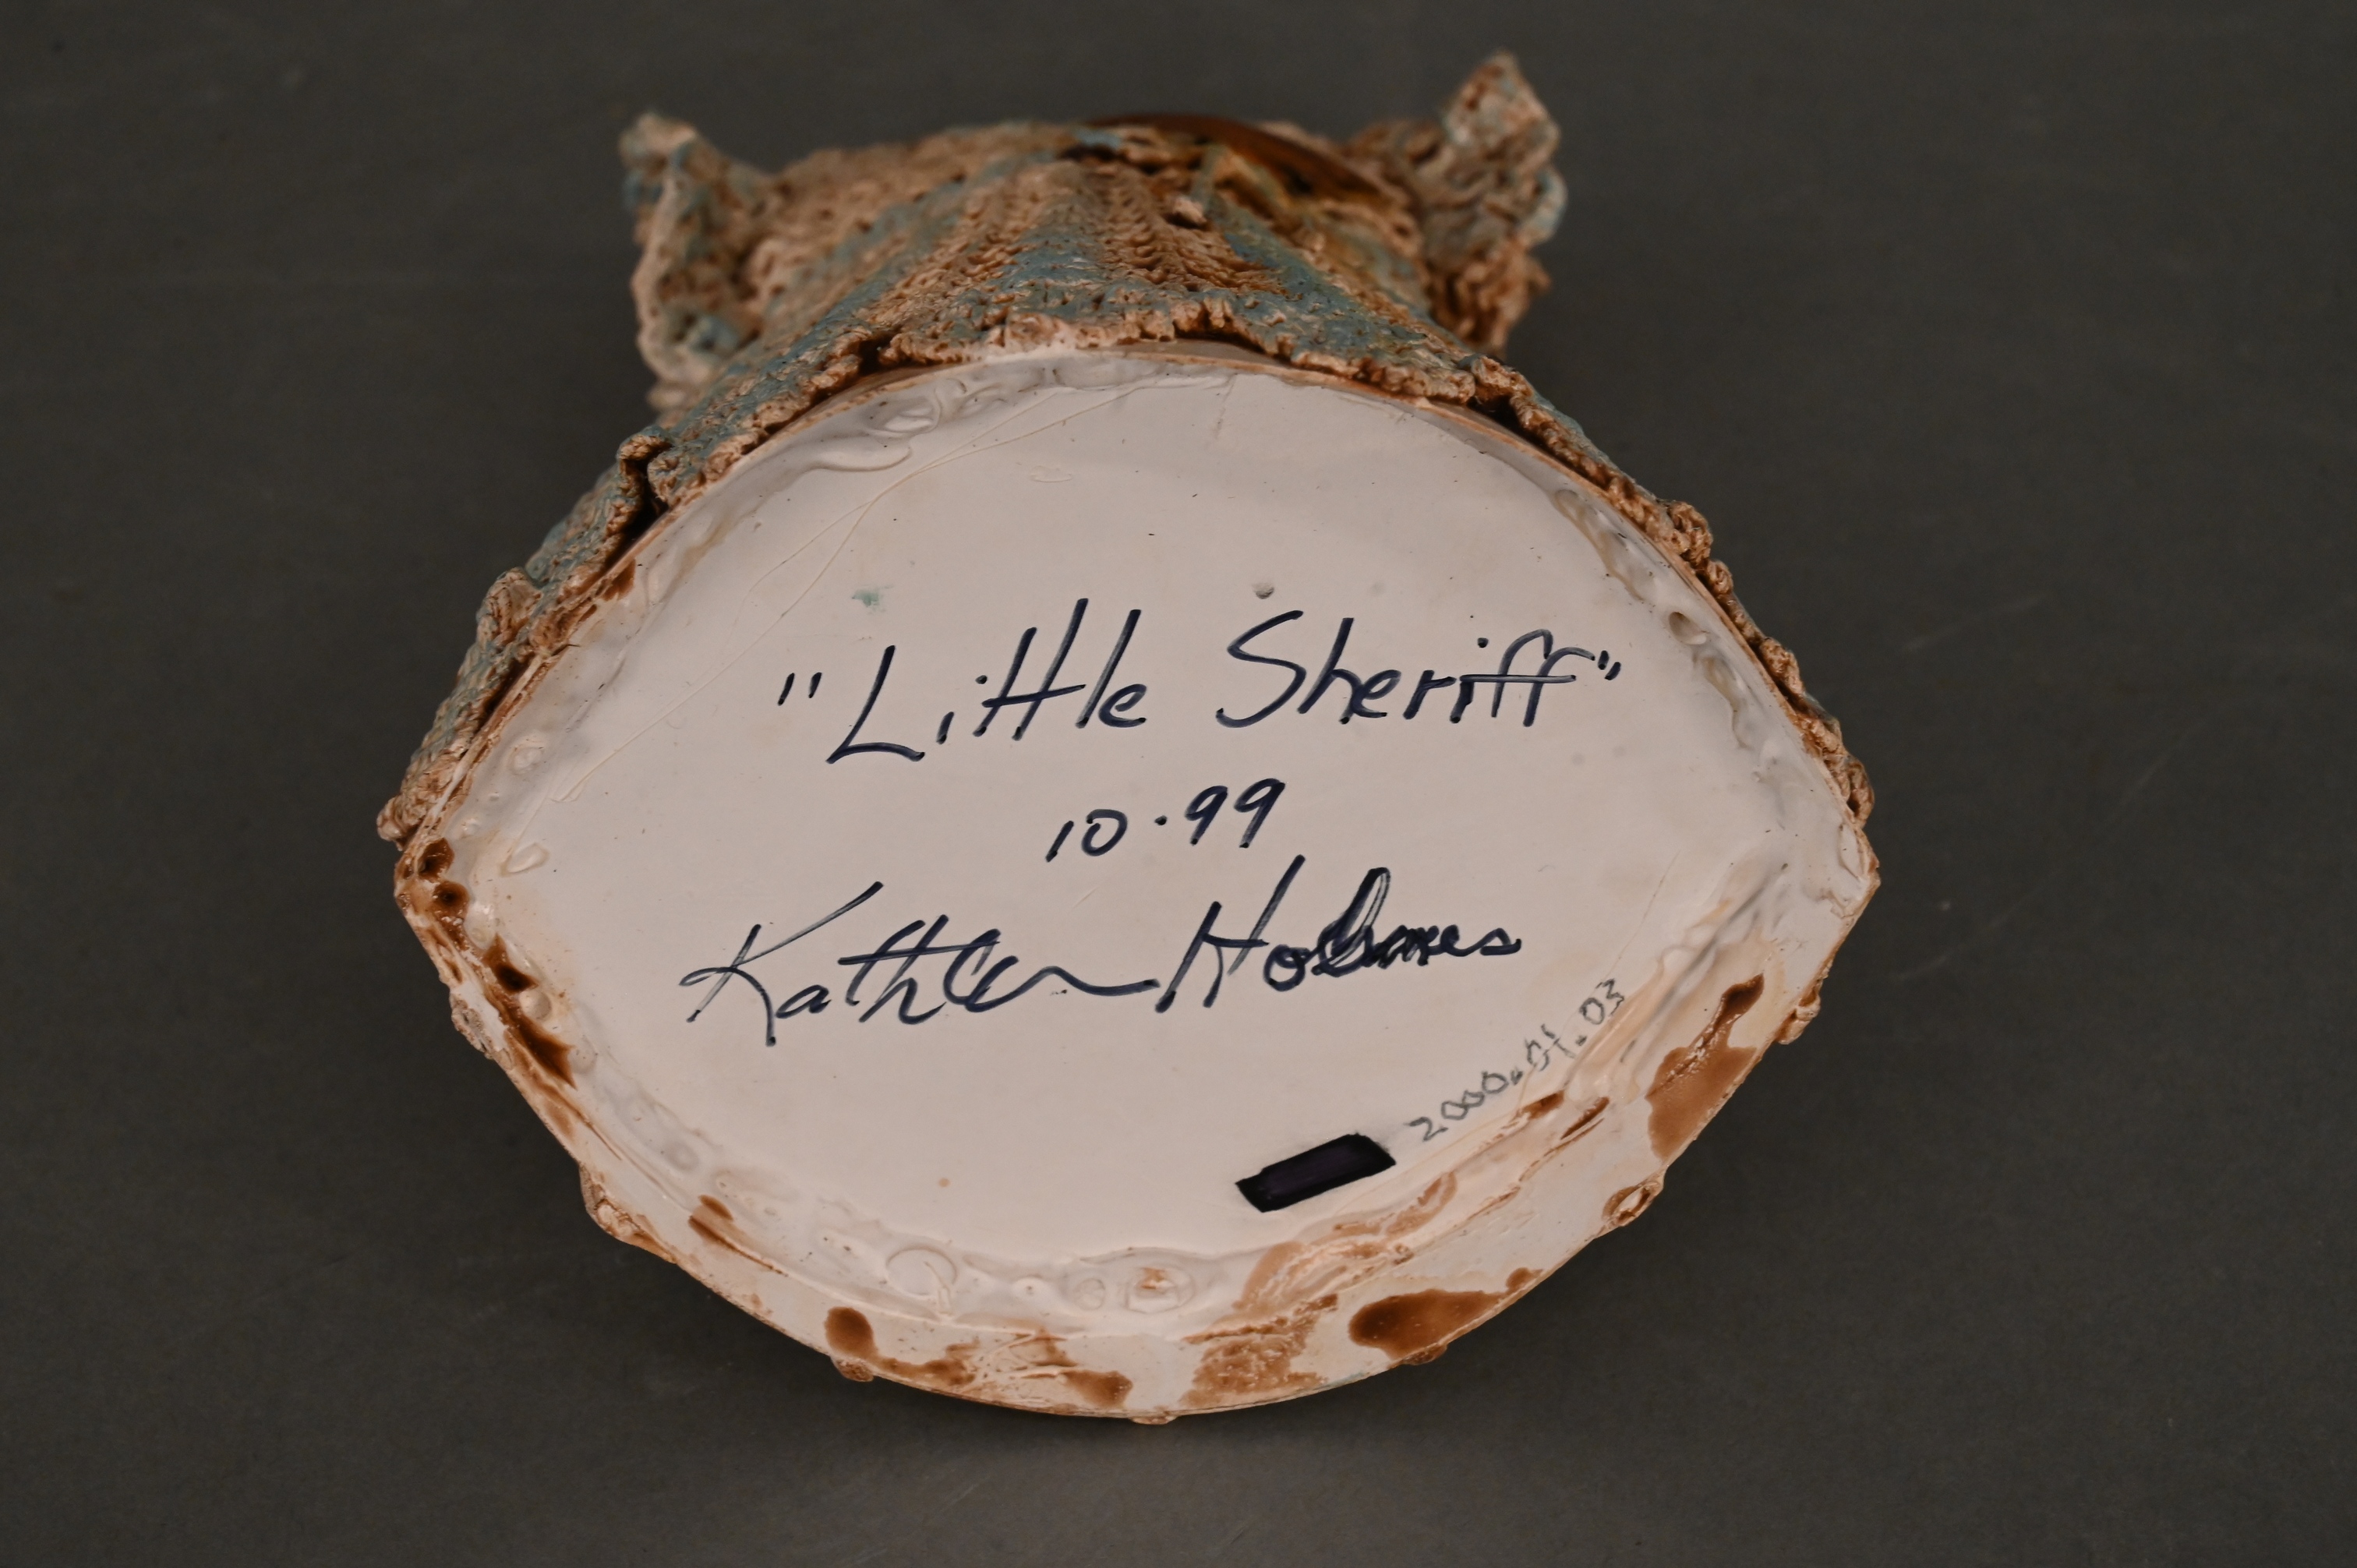 "Little Sheriff"
10·99
Kathleen Holmes
2000.01.03